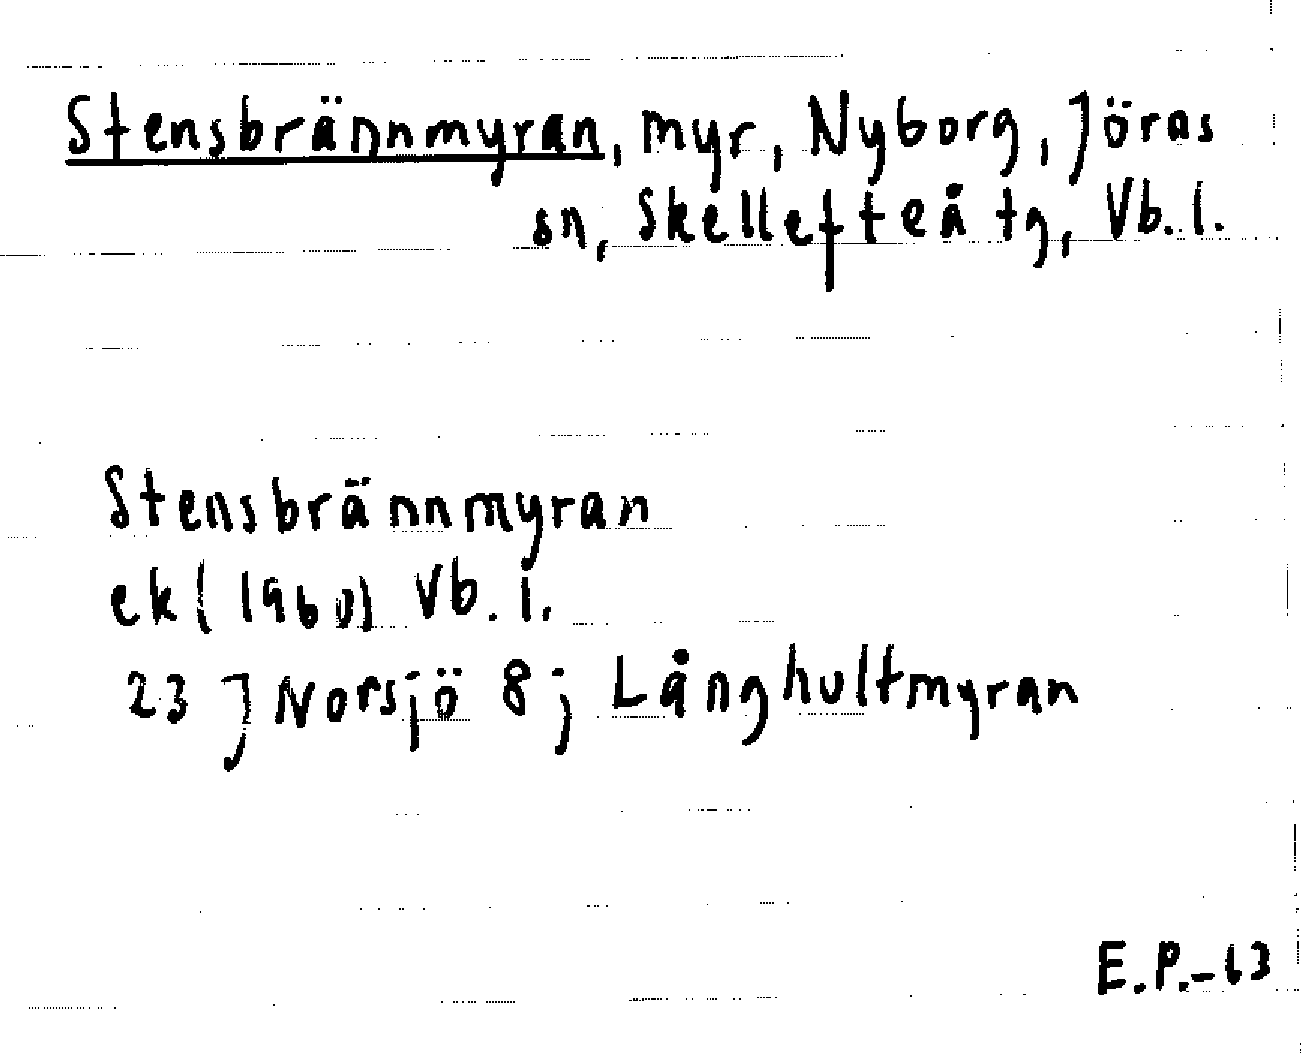 Stensbrännmyran, myr, Nyborg, Jörns
sn, Skellefteå tg, Vb. l.
Stensbrännmyran
ek (1960) Vb. l.
23 J Norsjö 8 j Långhultmyran
E.P.-63